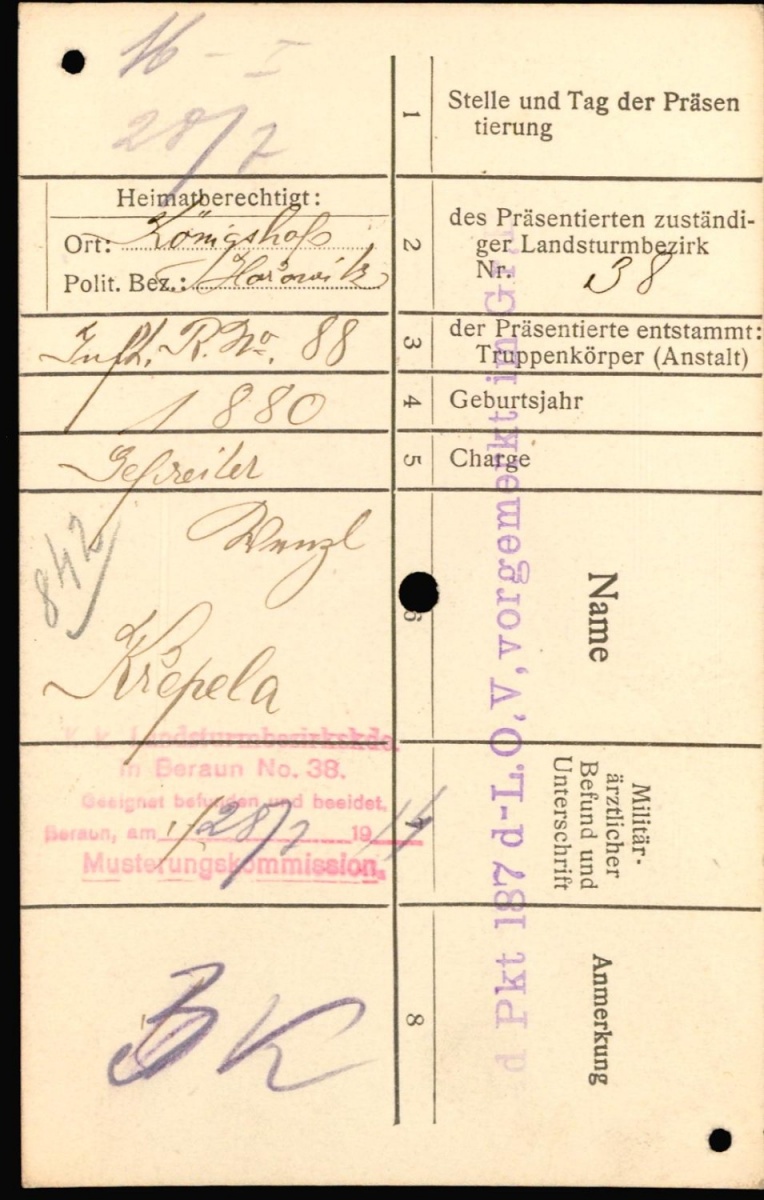 16 – I
28/7
1
Stelle und Tag der Präsen
tierung
Heimatberechtigt:
Ort: Königshof
Polit. Bez.: Hořowitz
2
des Präsentierten zuständi-
ger Landsturmbezirk
Nr. 38
Inft. R. No. 88
3
der Präsentierte entstammt:
Truppenkörper (Anstalt)
1880
4
Geburtsjahr
Gefreiter
5
Charge
842
Wenzl
Křepela
6
Name
k. k. Landsturmbezirkskdo.
in Beraun No. 38.
Geeignet befunden und beeidet,
Beraun, am 28/7 1914
Musterungskommission.
7
Militär-
ärztlicher
Befund und
Unterschrift
BK
8
Anmerkung
Pkt 187 d-L.O'V' vorgemerkt im G